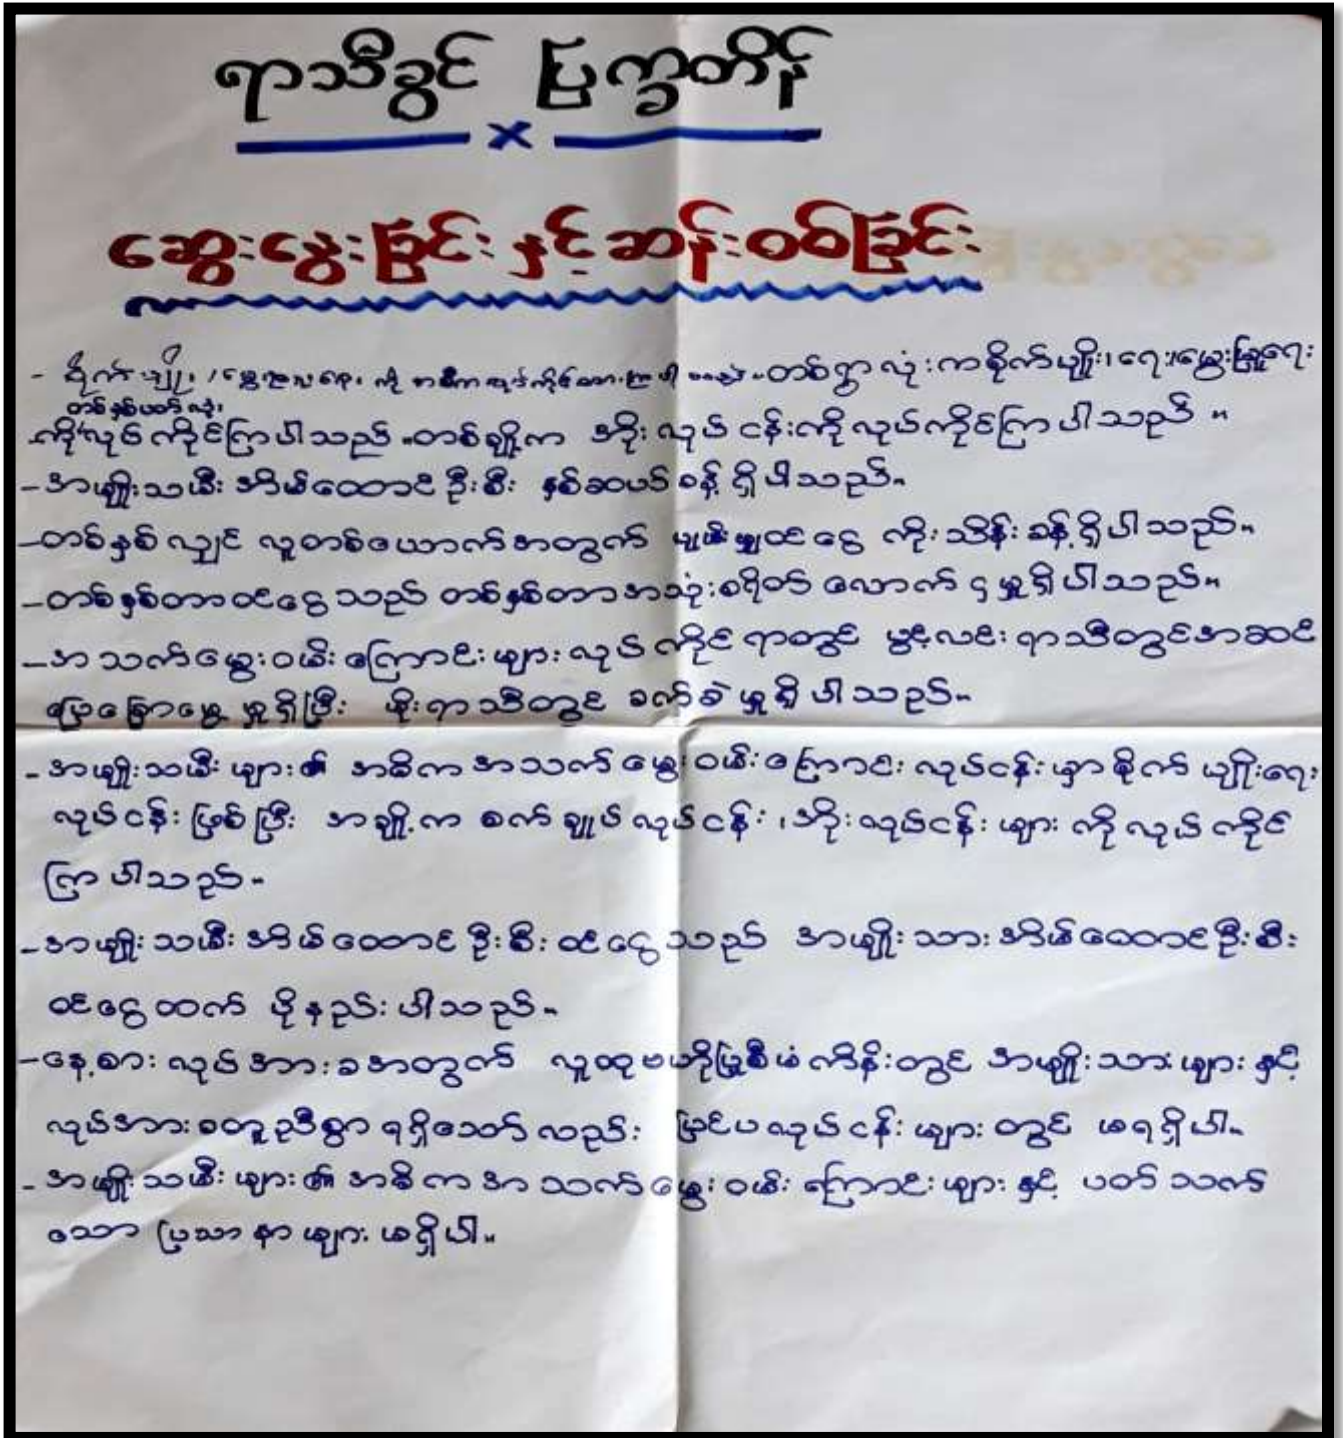 ရာသီခွင် ပြက္ခတိန်
x
ဆွေးနွေးခြင်းနှင့်ဆန်းစစ်ခြင်း
- စိုက်ပျိုး၊ တစ်ရွာလုံးကစိုက်ပျိုး၊ရေး၊မွေးမြူရေး
တစ်နှစ်ပတ်လုံး
ကိုလုပ်ကိုင်ကြပါသည်။တစ်ချို့က အိုးလုပ်ငန်းကိုလုပ်ကိုင်ကြပါသည်။
- အမျိုးသမီးအိမ်ထောင်ဦးစီး နှစ်ဆယ်ခန့်ရှိပါသည်။
- တစ်နှစ်လျှင် လူတစ်ယောက်အတွက် ပျမ်းမျှဝင်ငွေ ကိုးသိန်းခန့်ရှိပါသည်။
- တစ်နှစ်တာဝင်ငွေသည် တစ်နှစ်တာအသုံးစရိတ် လောက်ငှမှုရှိပါသည်။
- အသက်မွေးဝမ်းကြောင်းများလုပ်ကိုင်ရာတွင် ပွင့်လင်းရာသီတွင်အဆင်
ပြေချောမွေ့မှုရှိပြီး မိုးရာသီတွင် ခက်ခဲမှုရှိပါသည်။
- အမျိုးသမီးများ၏ အဓိကအသက်မွေးဝမ်းကြောင်းလုပ်ငန်းမှာစိုက်ပျိုးရေး
လုပ်ငန်းဖြစ်ပြီး အချို့က စက်ချုပ်လုပ်ငန်း၊အိုးလုပ်ငန်းများကိုလုပ်ကိုင်
ကြပါသည်။
- အမျိုးသမီးအိမ်ထောင်ဦးစီးဝင်ငွေသည် အမျိုးသားအိမ်ထောင်ဦးစီး
ဝင်ငွေထက် ပိုနည်းပါသည်။
- နေ့စားလုပ်အားခအတွက် လူထုဗဟိုပြုစီမံကိန်းတွင် အမျိုးသားများနှင့်
လုပ်အားခတူညီစွာရရှိသော်လည်း ပြင်ပလုပ်ငန်းများတွင် မရရှိပါ။
- အမျိုးသမီးများ၏အဓိကအသက်မွေးဝမ်းကြောင်းများနှင့် ပတ်သက်
သောပြဿနာများမရှိပါ။